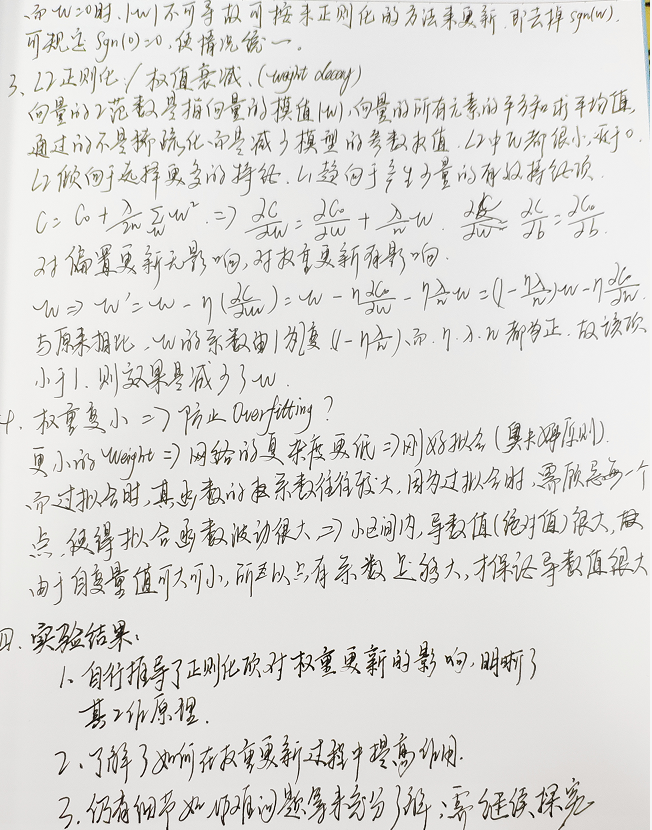 而w=0时.|w|不可导故可按未正则化的方法来更新.即去掉sgn(w).
可规定Sgn(0)=0,使情况统一。
3、L2正则化/权值衰减.(weight decay)
向量的2范数是指向量的模值|w|,向量的所有元素的平方和求平均值,
通过的不是稀疏化而是减少模型的参数权值.L2中w都很小,趋于0.
L2倾向于选择更多的特征.L1趋向于产生少量的有效特征项.
C = C₀ + λ/2n Σ_w w². ⇒ ∂C/∂w = ∂C₀/∂w + λ/n w. ∂C/∂b = ∂C₀/∂b.
对偏置更新无影响,对权重更新有影响.
w ⇒ w' = w - η(∂C/∂w) = w - η∂C₀/∂w - ηλ/n w = (1 - ηλ/n)w - η∂C₀/∂w.
与原来相比,w的系数由1变为(1-ηλ/n),而η.λ.n都为正.故该项
小于1.则效果是减少了w.
4.权重变小 ⇒ 防止Overfitting?
更小的weight ⇒ 网络的复杂度更低 ⇒ 刚好拟合(奥卡姆原则).
而过拟合时,其函数的系数往往较大,因为过拟合时,需顾忌每一个
点,使得拟合函数波动很大 ⇒ 小区间内,导数值(绝对值)很大,故
由于自变量值可大可小,所以只有系数足够大,才保证导数值很大
四.实验结果:
1、自行推导了正则化项对权重更新的影响,明晰了
其工作原理.
2、了解了如何在权重更新过程中提高作用.
3、仍有细节如 问题等未充分了解,需继续探究